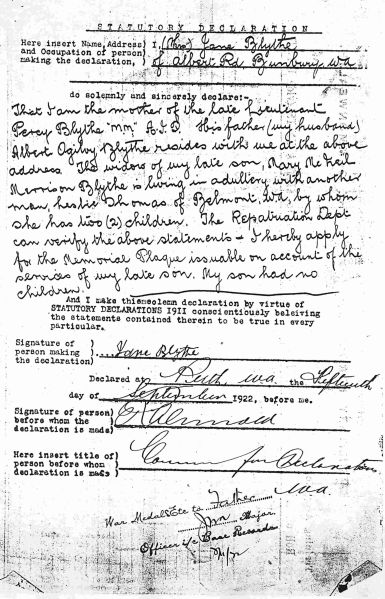 STATUTORY DECLARATION
Here insert Name, Address) I, (Mrs) Jane Blythe
and Occupation of person)
making the declaration, ) of Albert Rd, Bunbury, W.A.
do solemnly and sincerely declare:-
That I am the mother of the late Lieutenant
Percy Blythe "MM" A.I.F. His father (my husband)
Albert Ogilby Blythe resides with me at the above
address. The widow of my late son, Mary McKeil
Merrison Blythe is living in adultery with another
man, Leslie Thomas of Belmont, WA, by whom
she has two (2) children. The Repatriation Dept
can verify the above statements - I hereby apply
for the Memorial Plaque issuable on account of the
services of my late son. My son had no
children.
And I make this solemn declaration by virtue of
STATUTORY DECLARATIONS 1911 conscientiously beleiving
the statements contained therein to be true in every
particular.
Signature of )
person making ) Jane Blythe
the declaration)
Declared at Perth, W.A. the Fifteenth
day of September 1922, before me.
Signature of person)
before whom the )
declaration is made)
Here insert title of ) Comm for Declarations
person before whom )
declaration is made ) W.A.
War Medals Etc to Father
Major
Officer i/c Base Records